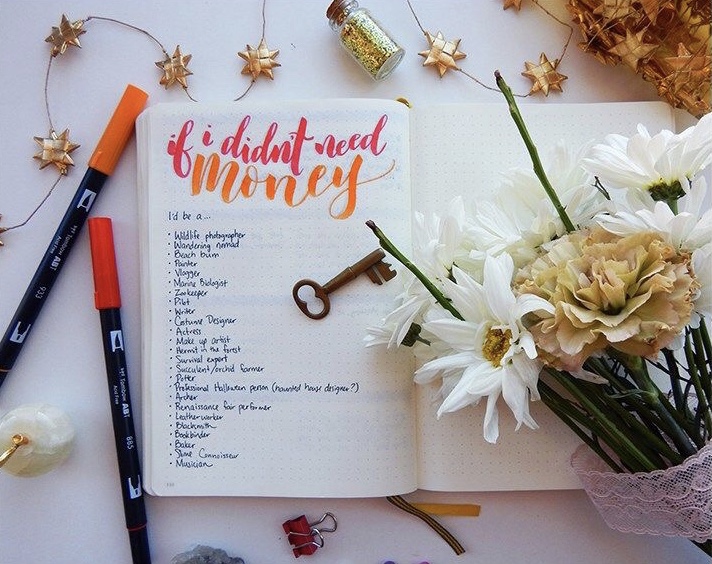 if i didn't need
money
I'd be a...
• Wildlife photographer
• Wandering nomad
• Beach bum
• Painter
• Vlogger
• Marine Biologist
• Zookeeper
• Pilot
• Writer
• Costume Designer
• Actress
• Make up artist
• Hermit in the forest
• Survival expert
• Succulent/orchid farmer
• Potter
• Professional Halloween person (haunted house designer?)
• Archer
• Renaissance fair performer
• Leatherworker
• Blacksmith
• Bookbinder
• Baker
• Slime Connoisseur
• Musician
Tombow ABT
933
Tombow ABT
885